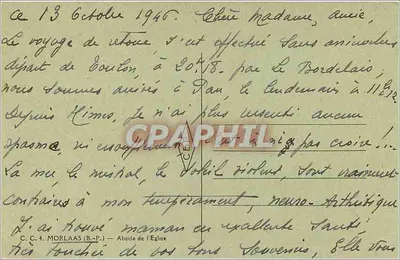 ce 13 Octobre 1946. Chère Madame, amie,
Le voyage de retour, s'est effectué sans
départ de Toulon, à 20h18. par le Bordelais,
nous sommes arrivés à Pau, le lendemain à 11h
Depuis Nîmes, je n'ai plus ressenti aucun
spasme, ni à n'y pas croire!...
CPARPHIL
La mer le mistral, le soleil violent, sont vraiment
contraires à mon tempérament, neuro-Arthritique
J'ai trouvé maman en excellente santé,
C. C. 4. MORLAAS (B.-P.) — Abside de l'Eglise
très touchée de vos bons souvenirs, Elle vous